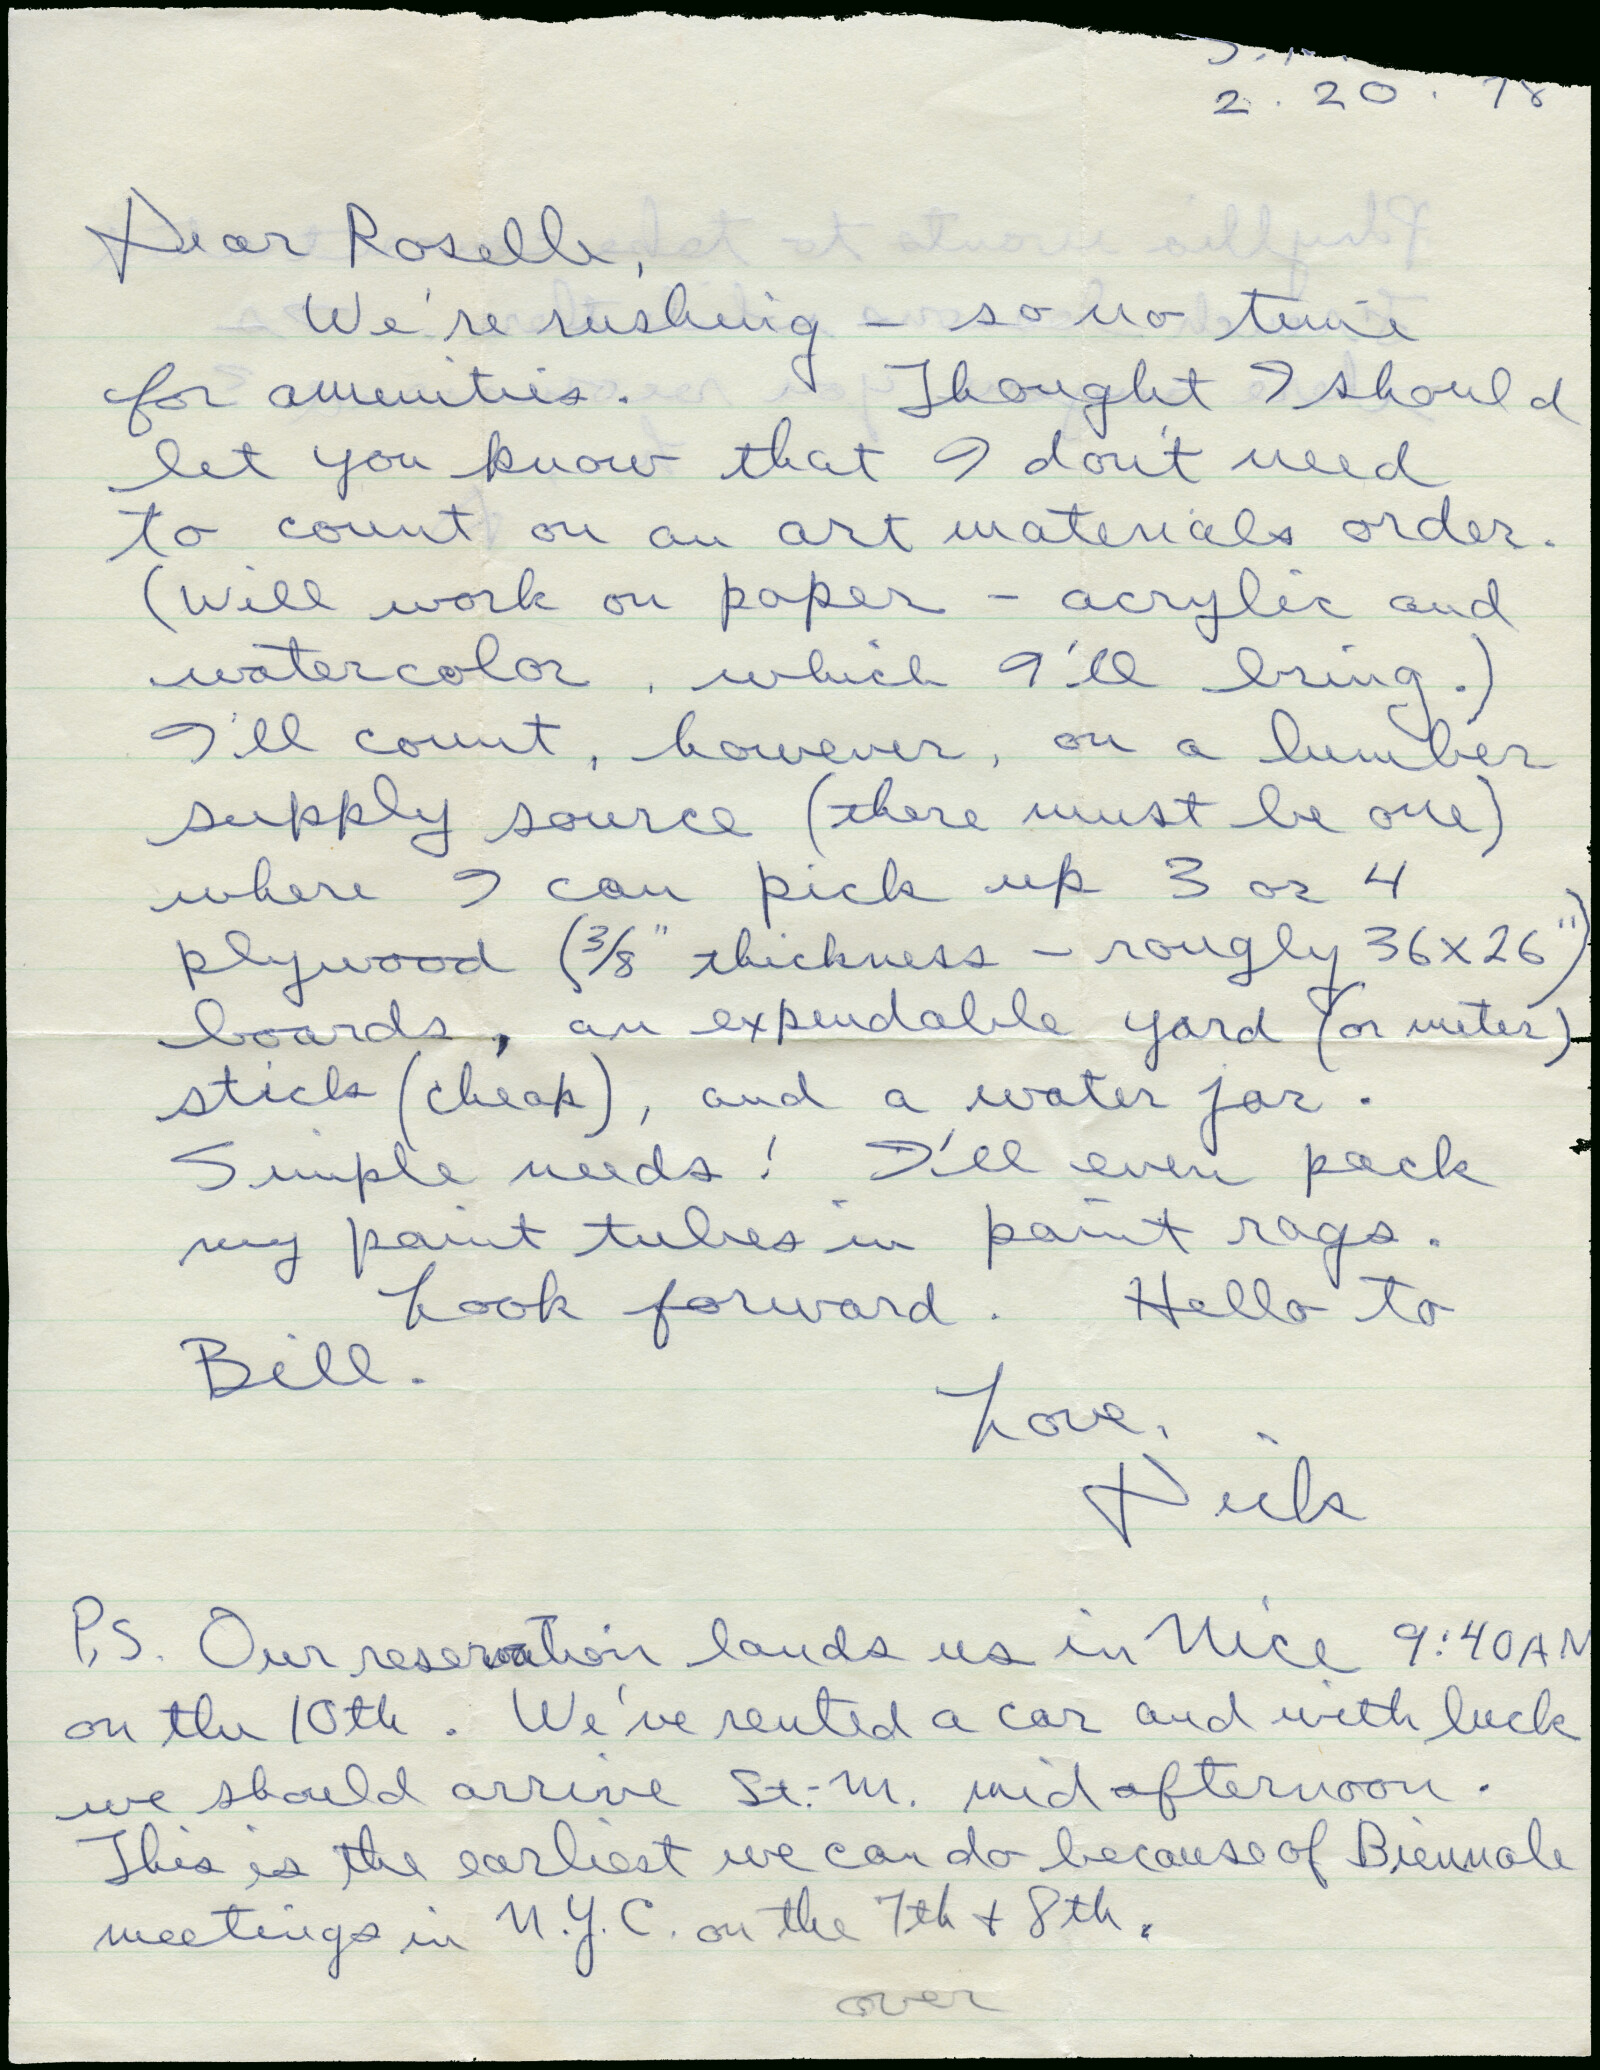 2.20.78
Dear Roselle,
We're rushing - so no time
for amenities. Thought I should
let you know that I don't need
to count on an art materials order.
(Will work on paper - acrylic and
watercolor, which I'll bring.)
I'll count, however, on a lumber
supply source (there must be one)
where I can pick up 3 or 4
plywood (3/8" thickness - rougly 36x26")
boards, an expendable yard (or meter)
stick (cheap), and a water jar.
Simple needs! I'll even pack
my paint tubes in paint rags.
Look forward. Hello to
Bill.
Love,
Dick
P.S. Our reservation lands us in Nice 9:40AM
on the 10th. We've rented a car and with luck
we should arrive St.-M. mid afternoon.
This is the earliest we can do because of Biennale
meetings in N.Y.C. on the 7th + 8th.
over